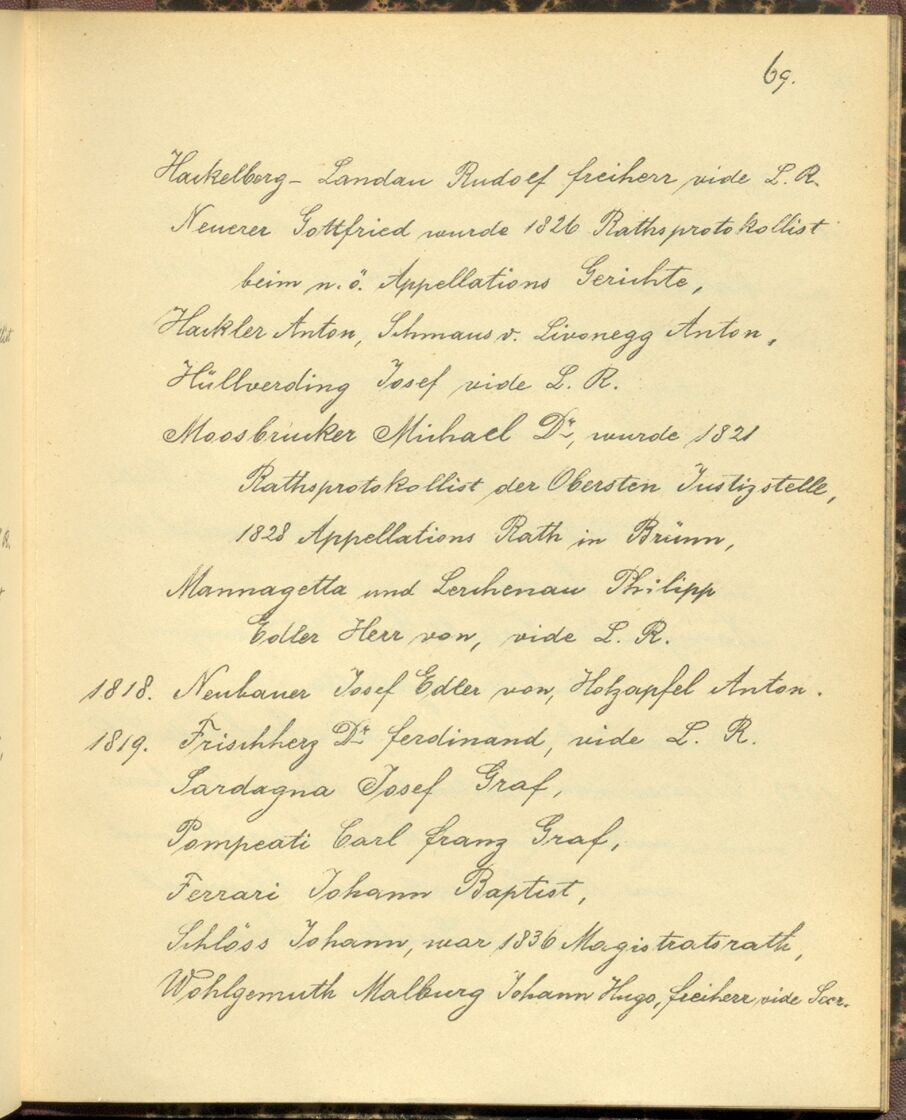 69.
Hackelberg - Landau Rudolf freiherr vide L. R.
Neuerer Gottfried wurde 1826 Rathsprotokollist
beim n. ö. Appellations Gerichte,
Hackler Anton, Schmaus v. Livonegg Anton,
Hüllverding Josef vide L. R.
Moosbrucker Michael Dr, wurde 1821
Rathsprotokollist der Obersten Justizstelle,
1828 Appellations Rath in Brünn,
Mannagetta und Lerchenau Philipp
Edler Herr von, vide L. R.
1818. Neubauer Josef Edler von, Holzapfel Anton.
1819. Frischherz Dr ferdinand, vide L. R.
Sardagna Josef Graf,
Pompeati Carl franz Graf,
Ferrari Johann Baptist,
Schlöss Johann, war 1836 Magistratsrath,
Wohlgemuth Malburg Johann Hugo, freiherr vide Secr.